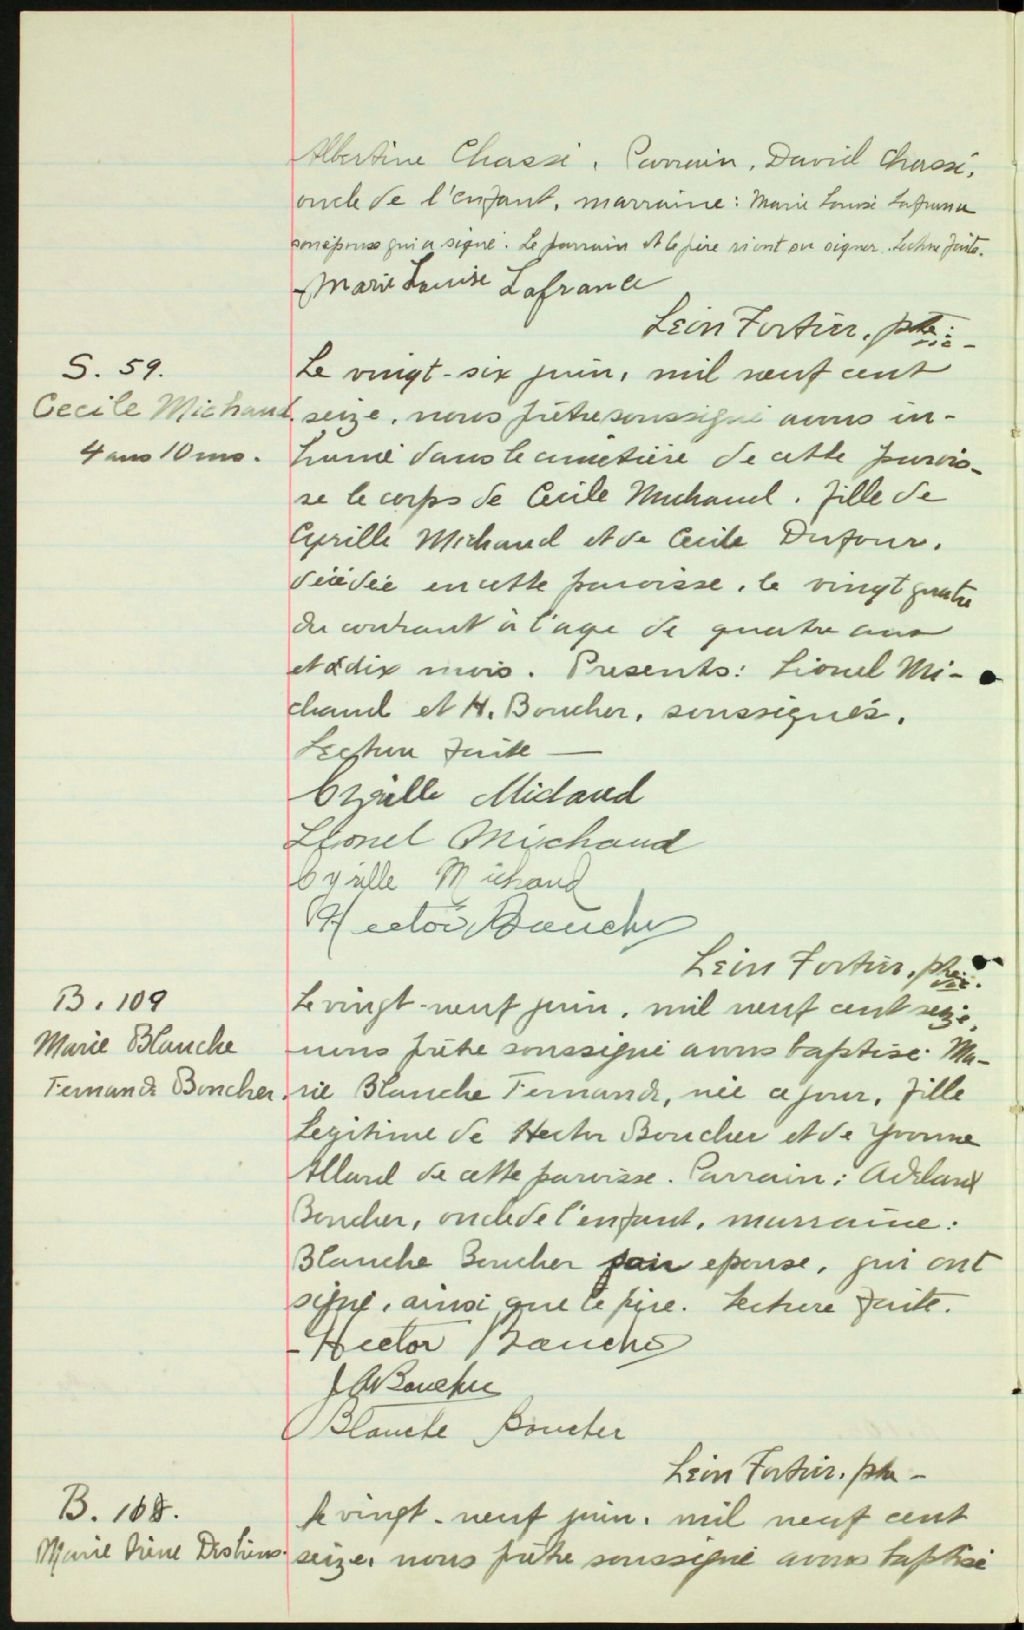 Albertine Chassé, Parrain, David Chassé,
oncle de l'enfant, marraine: Marie Louise Lafrance
son épouse qui a signé. Le parrain et le père n'ont su signer. Lecture faite.
Marie Louise Lafrance
Léon Fortier, ptre
S. 59.
Cecile Michaud
4 ans 10 ms.
Le vingt-six juin, mil neuf cent
seize, nous prêtre soussigné avons in-
humé dans le cimetière de cette parois-
se le corps de Cecile Michaud. fille de
Cyrille Michaud et de Cecile Dufour.
décédée en cette paroisse, le vingt quatre
du courant à l'age de quatre ans
et dix mois. Presents: Lionel Mi-
chaud et H. Boucher, soussignés.
Lecture faite —
Cyrille Michaud
Lionel Michaud
Cyrille Michaud
Hector Boucher
Léon Fortier, ptre.
B. 109
Marie Blanche
Fernande Boucher.
Le vingt-neuf juin, mil neuf cent seize,
nous prêtre soussigné avons baptisé Ma-
rie Blanche Fernande, née ce jour, fille
legitime de Hector Boucher et de Yvonne
Allard de cette paroisse. Parrain: Adelard
Boucher, oncle de l'enfant, marraine:
Blanche Boucher son epouse, qui ont
signé, ainsi que le père. Lecture faite.
Hector Boucher
J A Boucher
Blanche Boucher
Léon Fortier, ptre -
B. 108.
Marie Irène
Le vingt-neuf juin, mil neuf cent
seize, nous prêtre soussigné avons baptisé